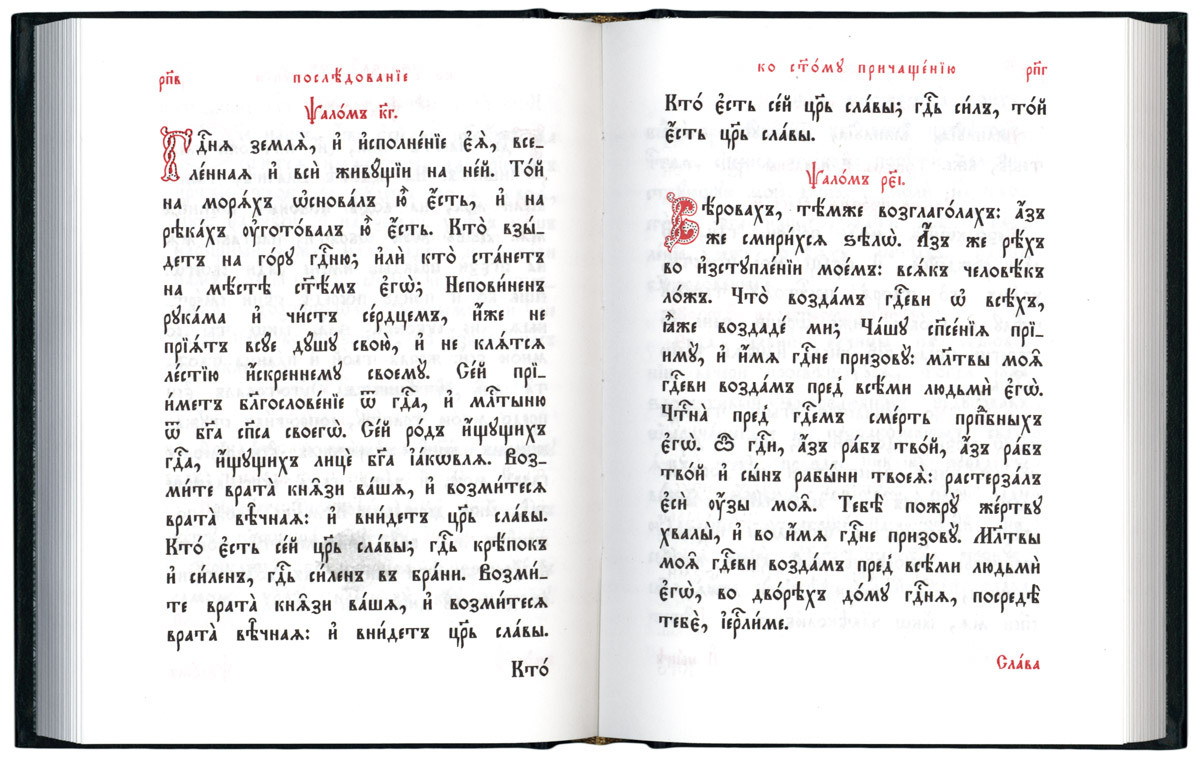 рп҃в
послѣ́дованїе
Ѱало́мъ к҃г.
Гдⷭ҇нѧ землѧ̀, и҆ и҆сполне́нїе є҆ѧ̀, все_
ле́ннаѧ и҆ всѝ живꙋ́щїи на не́й. То́й
на морѧ́хъ ѡ҆снова́лъ ю҆̀ є҆́сть, и҆ на
рѣка́хъ ᲂу҆гото́валъ ю҆̀ є҆́сть. Кто̀ взы́_
детъ на го́рꙋ гдⷭ҇ню; и҆лѝ кто̀ ста́нетъ
на мѣ́стѣ ст҃ѣ́мъ є҆гѡ̀; Непови́ненъ
рꙋка́ма и҆ чи́стъ се́рдцемъ, и҆́же не
прїѧ́тъ всꙋ́е дꙋ́шꙋ свою̀, и҆ не клѧ́тсѧ
ле́стїю и҆́скреннемꙋ своемꙋ̀. Се́й прїи́_
метъ блⷭ҇гослове́нїе ѿ гдⷭ҇а, и҆ млⷭ҇тыню
ѿ бг҃а сп҃са своегѡ̀. Се́й ро́дъ и҆́щꙋщихъ
гдⷭ҇а, и҆́щꙋщихъ лицѐ бг҃а і҆а́кѡвлѧ. Воз_
ми́те врата̀ кнѧ̑зи ва́шѧ, и҆ возми́тесѧ
врата̀ вѣ̑чнаѧ: и҆ вни́детъ цр҃ь сла́вы.
Кто̀ є҆́сть се́й цр҃ь сла́вы; гдⷭ҇ь крѣ́покъ
и҆ си́ленъ, гдⷭ҇ь си́ленъ въ бра́ни. Возми́_
те врата̀ кнѧ̑зи ва́шѧ, и҆ возми́тесѧ
врата̀ вѣ̑чнаѧ: и҆ вни́детъ цр҃ь сла́вы.
Кто́
ко ст҃о́мꙋ причаще́нїю
рп҃г
Кто́ є҆́сть се́й цр҃ь сла́вы; гдⷭ҇ь си́лъ, то́й
є҆́сть цр҃ь сла́вы.
Ѱало́мъ рє҃і.
Вѣ́ровахъ, тѣ́мже возглаго́лахъ: а҆́зъ
же смири́хсѧ ѕѣлѡ̀. А҆́зъ же рѣ́хъ
во и҆зстꙋпле́нїи мое́мъ: всѧ́къ человѣ́къ
ло́жъ. Что̀ возда́мъ гдⷭ҇еви ѡ҆ всѣ́хъ,
ꙗ҆̀же воздаде́ ми; Ча́шꙋ сп҃се́нїѧ прїи_
имꙋ̀, и҆ и҆́мѧ гдⷭ҇не призовꙋ̀: мл҃твы моѧ̑
гдⷭ҇еви возда́мъ пред̾ всѣ́ми людьмѝ є҆гѡ̀.
Чтⷭ҇на̀ пред̾ гдⷭ҇емъ сме́рть прпⷣбныхъ
є҆гѡ̀. Ѽ гдⷭ҇и, а҆́зъ ра́бъ тво́й, а҆́зъ ра́бъ
тво́й и҆ сы́нъ рабы́ни твоеѧ̀: растерза́лъ
є҆сѝ ᲂу҆́зы моѧ̑. Тебѣ̀ пожрꙋ̀ же́ртвꙋ
хвалы̀, и҆ во и҆́мѧ гдⷭ҇не призовꙋ̀. Мл҃твы
моѧ̑ гдⷭ҇еви возда́мъ пред̾ всѣ́ми людьмѝ
є҆гѡ̀, во дво́рѣхъ до́мꙋ гдⷭ҇нѧ, посредѣ̀
тебє̀, і҆ерⷭ҇ли́ме.
Сла́ва